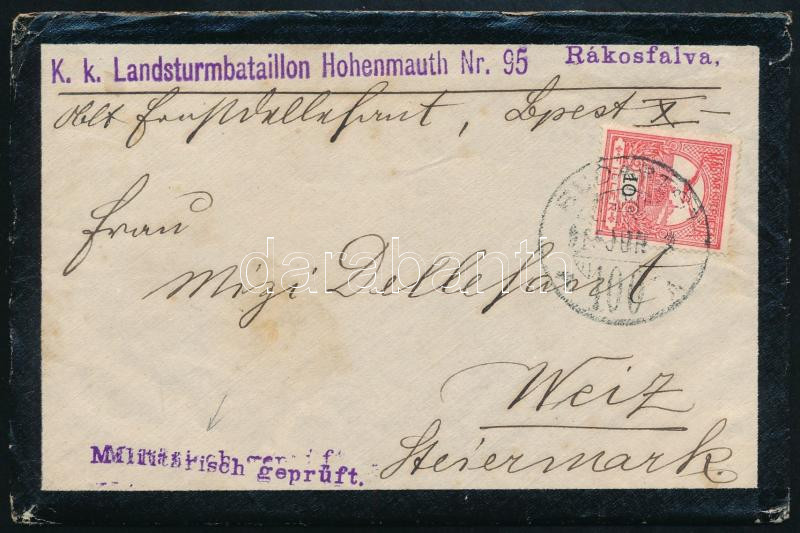 K. k. Landsturmbataillon Hohenmauth Nr. 95 Rákosfalva,
Oblt Ernst Dellefant, Bpest X
10
JUN
100
Frau
Mizi Dellefant
darabanth
Weiz
Steiermark.
Militärisch geprüft.